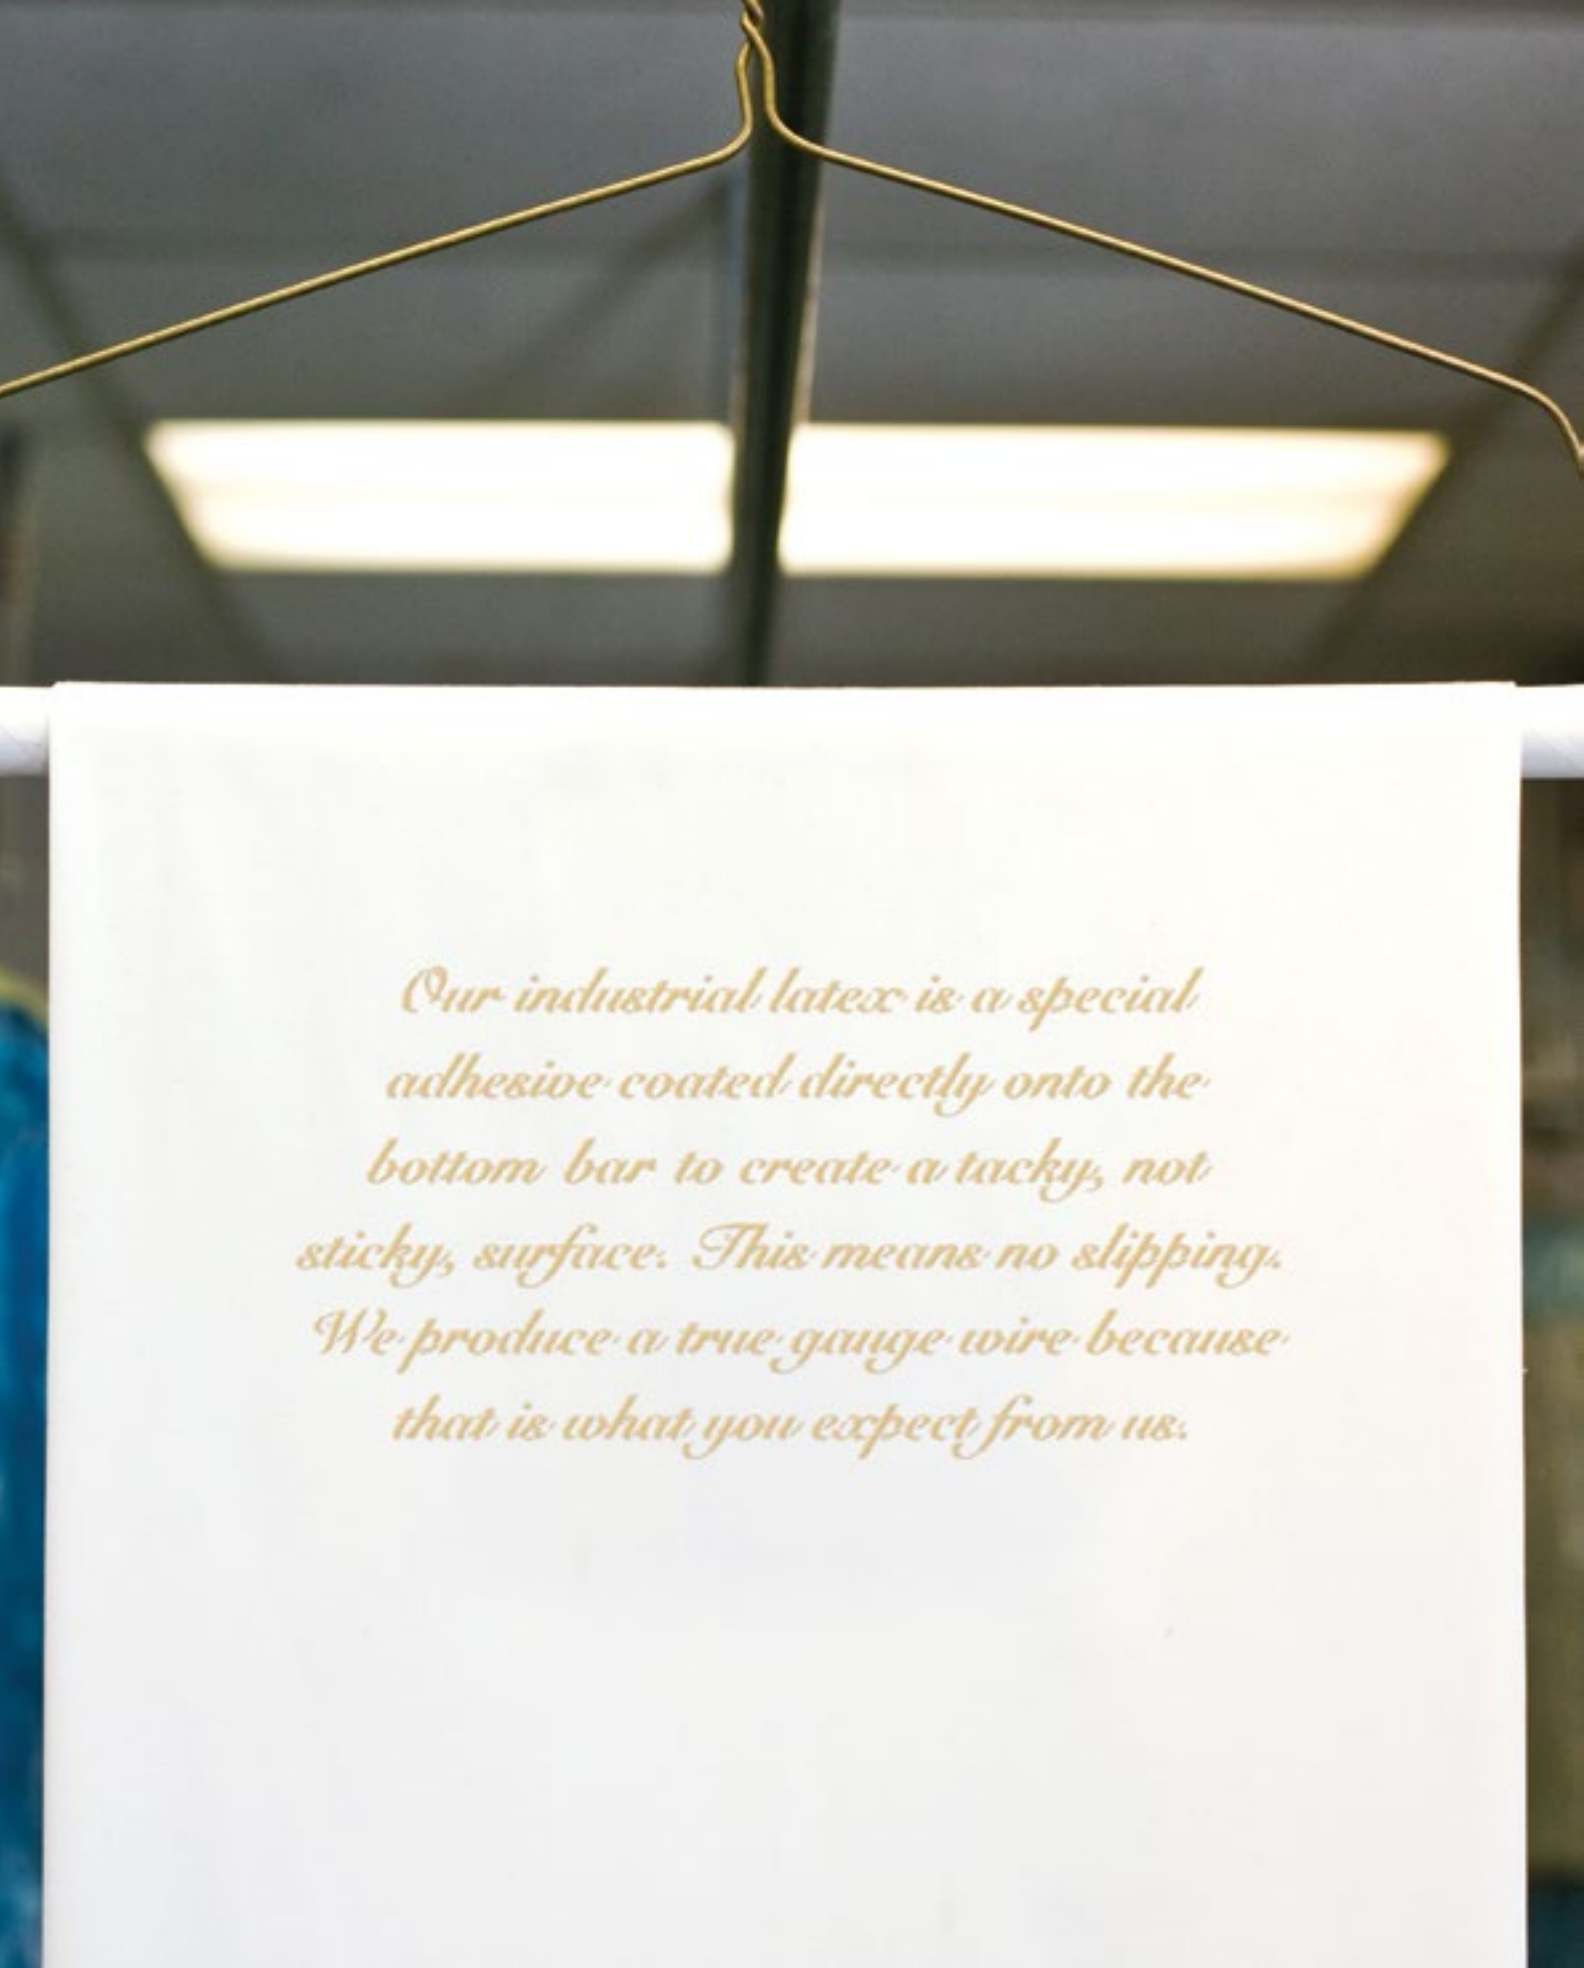 Our industrial latex is a special
adhesive coated directly onto the
bottom bar to create a tacky, not
sticky, surface. This means no slipping.
We produce a true gauge wire because
that is what you expect from us.